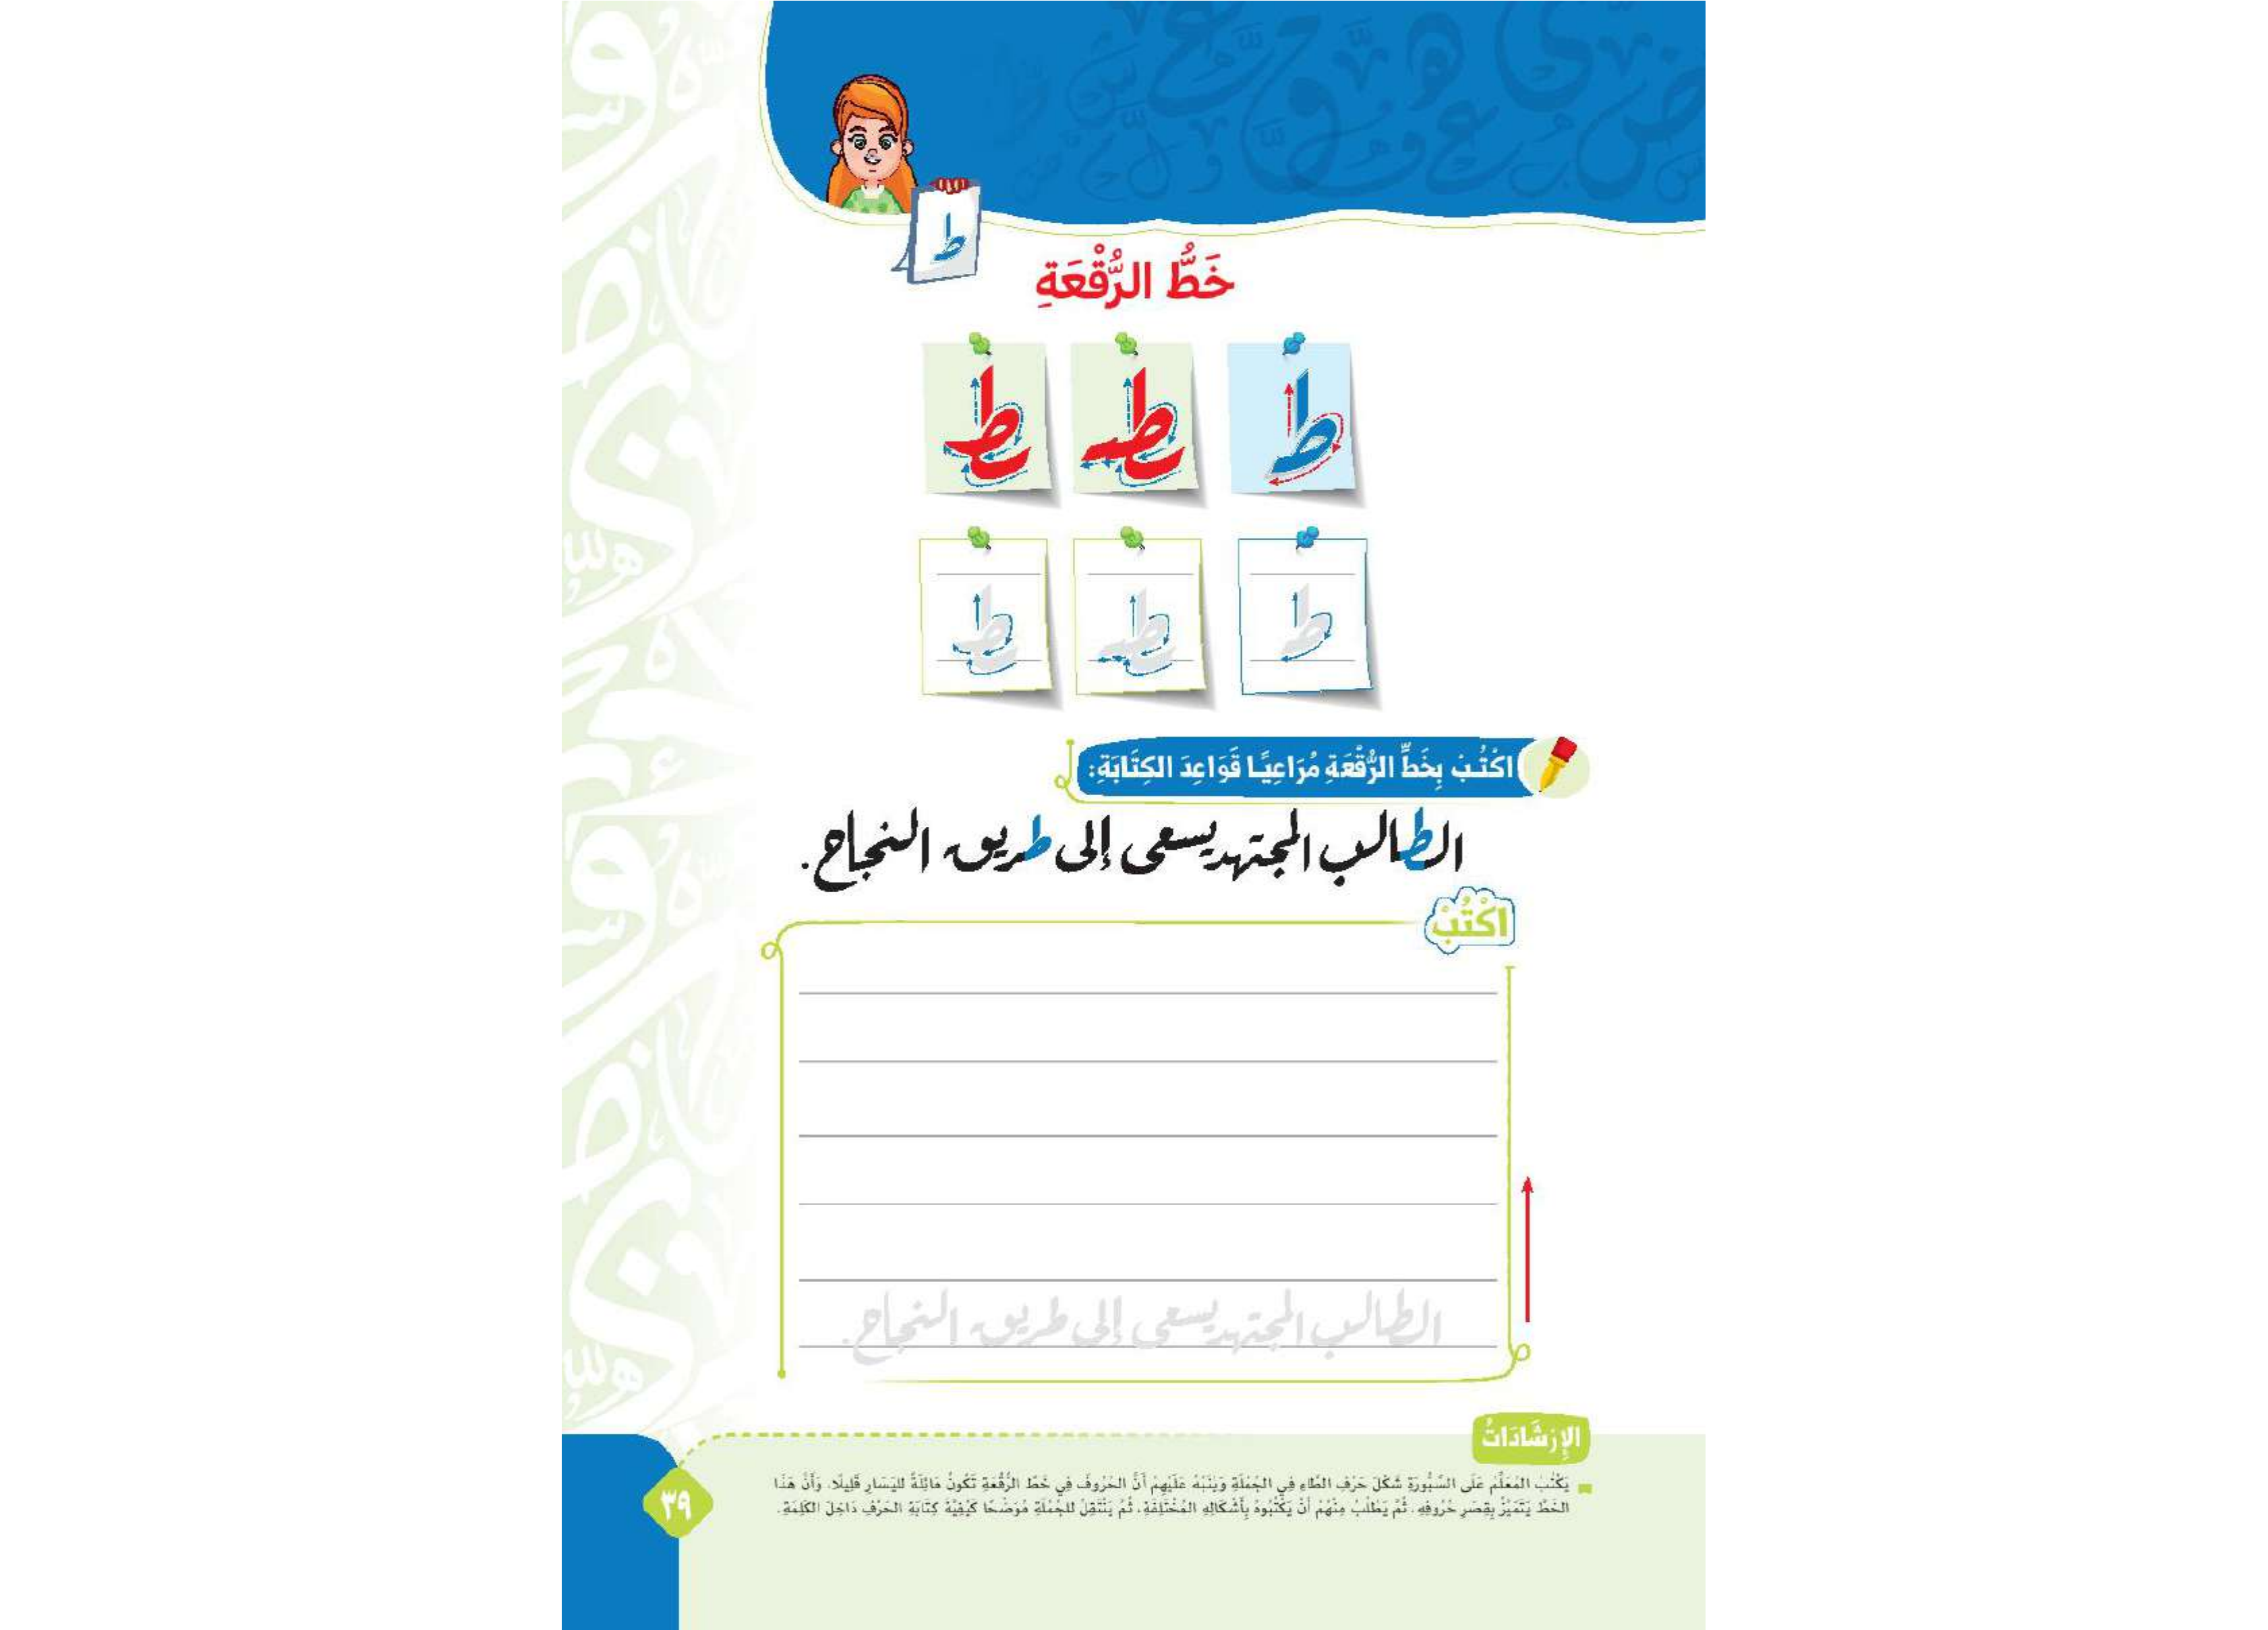 ط
خَطُّ الرُّقْعَةِ
ط طـ ـطـ
ط طـ ـطـ
اكْتُبْ بِخَطِّ الرُّقْعَةِ مُرَاعِيًا قَوَاعِدَ الكِتَابَةِ:
الطالب المجتهد يسعى إلى طريق النجاح.
اكْتُبْ
الطالب المجتهد يسعى إلى طريق النجاح.
الإِرْشَادَاتُ
يَكْتُبُ المُعَلِّمُ عَلَى السَّبُّورَةِ شَكْلَ حَرْفِ الطَّاءِ فِي الجُمْلَةِ وَيُنَبِّهُ عَلَيْهِمْ أَنَّ الحُرُوفَ فِي خَطِّ الرُّقْعَةِ تَكُونُ مَائِلَةً لليَسَارِ قَلِيلًا. وَأَنَّ هَذَا
الخَطَّ يَتَمَيَّزُ بِقِصَرِ حُرُوفِهِ. ثُمَّ يَطْلُبُ مِنْهُمْ أَنْ يَكْتُبُوهُ بِأَشْكَالِهِ المُخْتَلِفَةِ. ثُمَّ يَنْتَقِلُ للجُمْلَةِ مُوَضِّحًا كَيْفِيَّةَ كِتَابَةِ الحَرْفِ دَاخِلَ الكَلِمَةِ.
٣٩